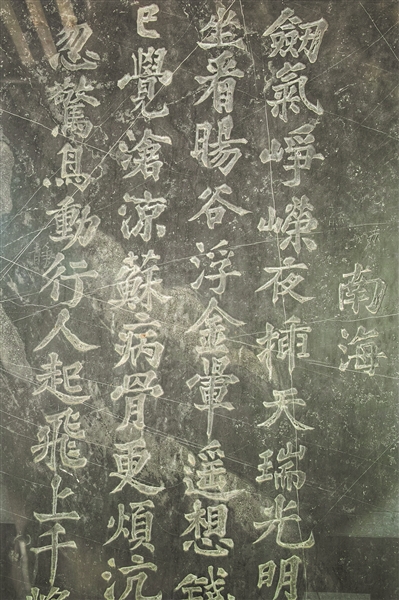 南海
劒氣崢嶸夜插天瑞光明
坐看暘谷浮金暈遥想錢
已覺滄涼蘇病骨更煩沆
忽驚鳥動行人起飛上千